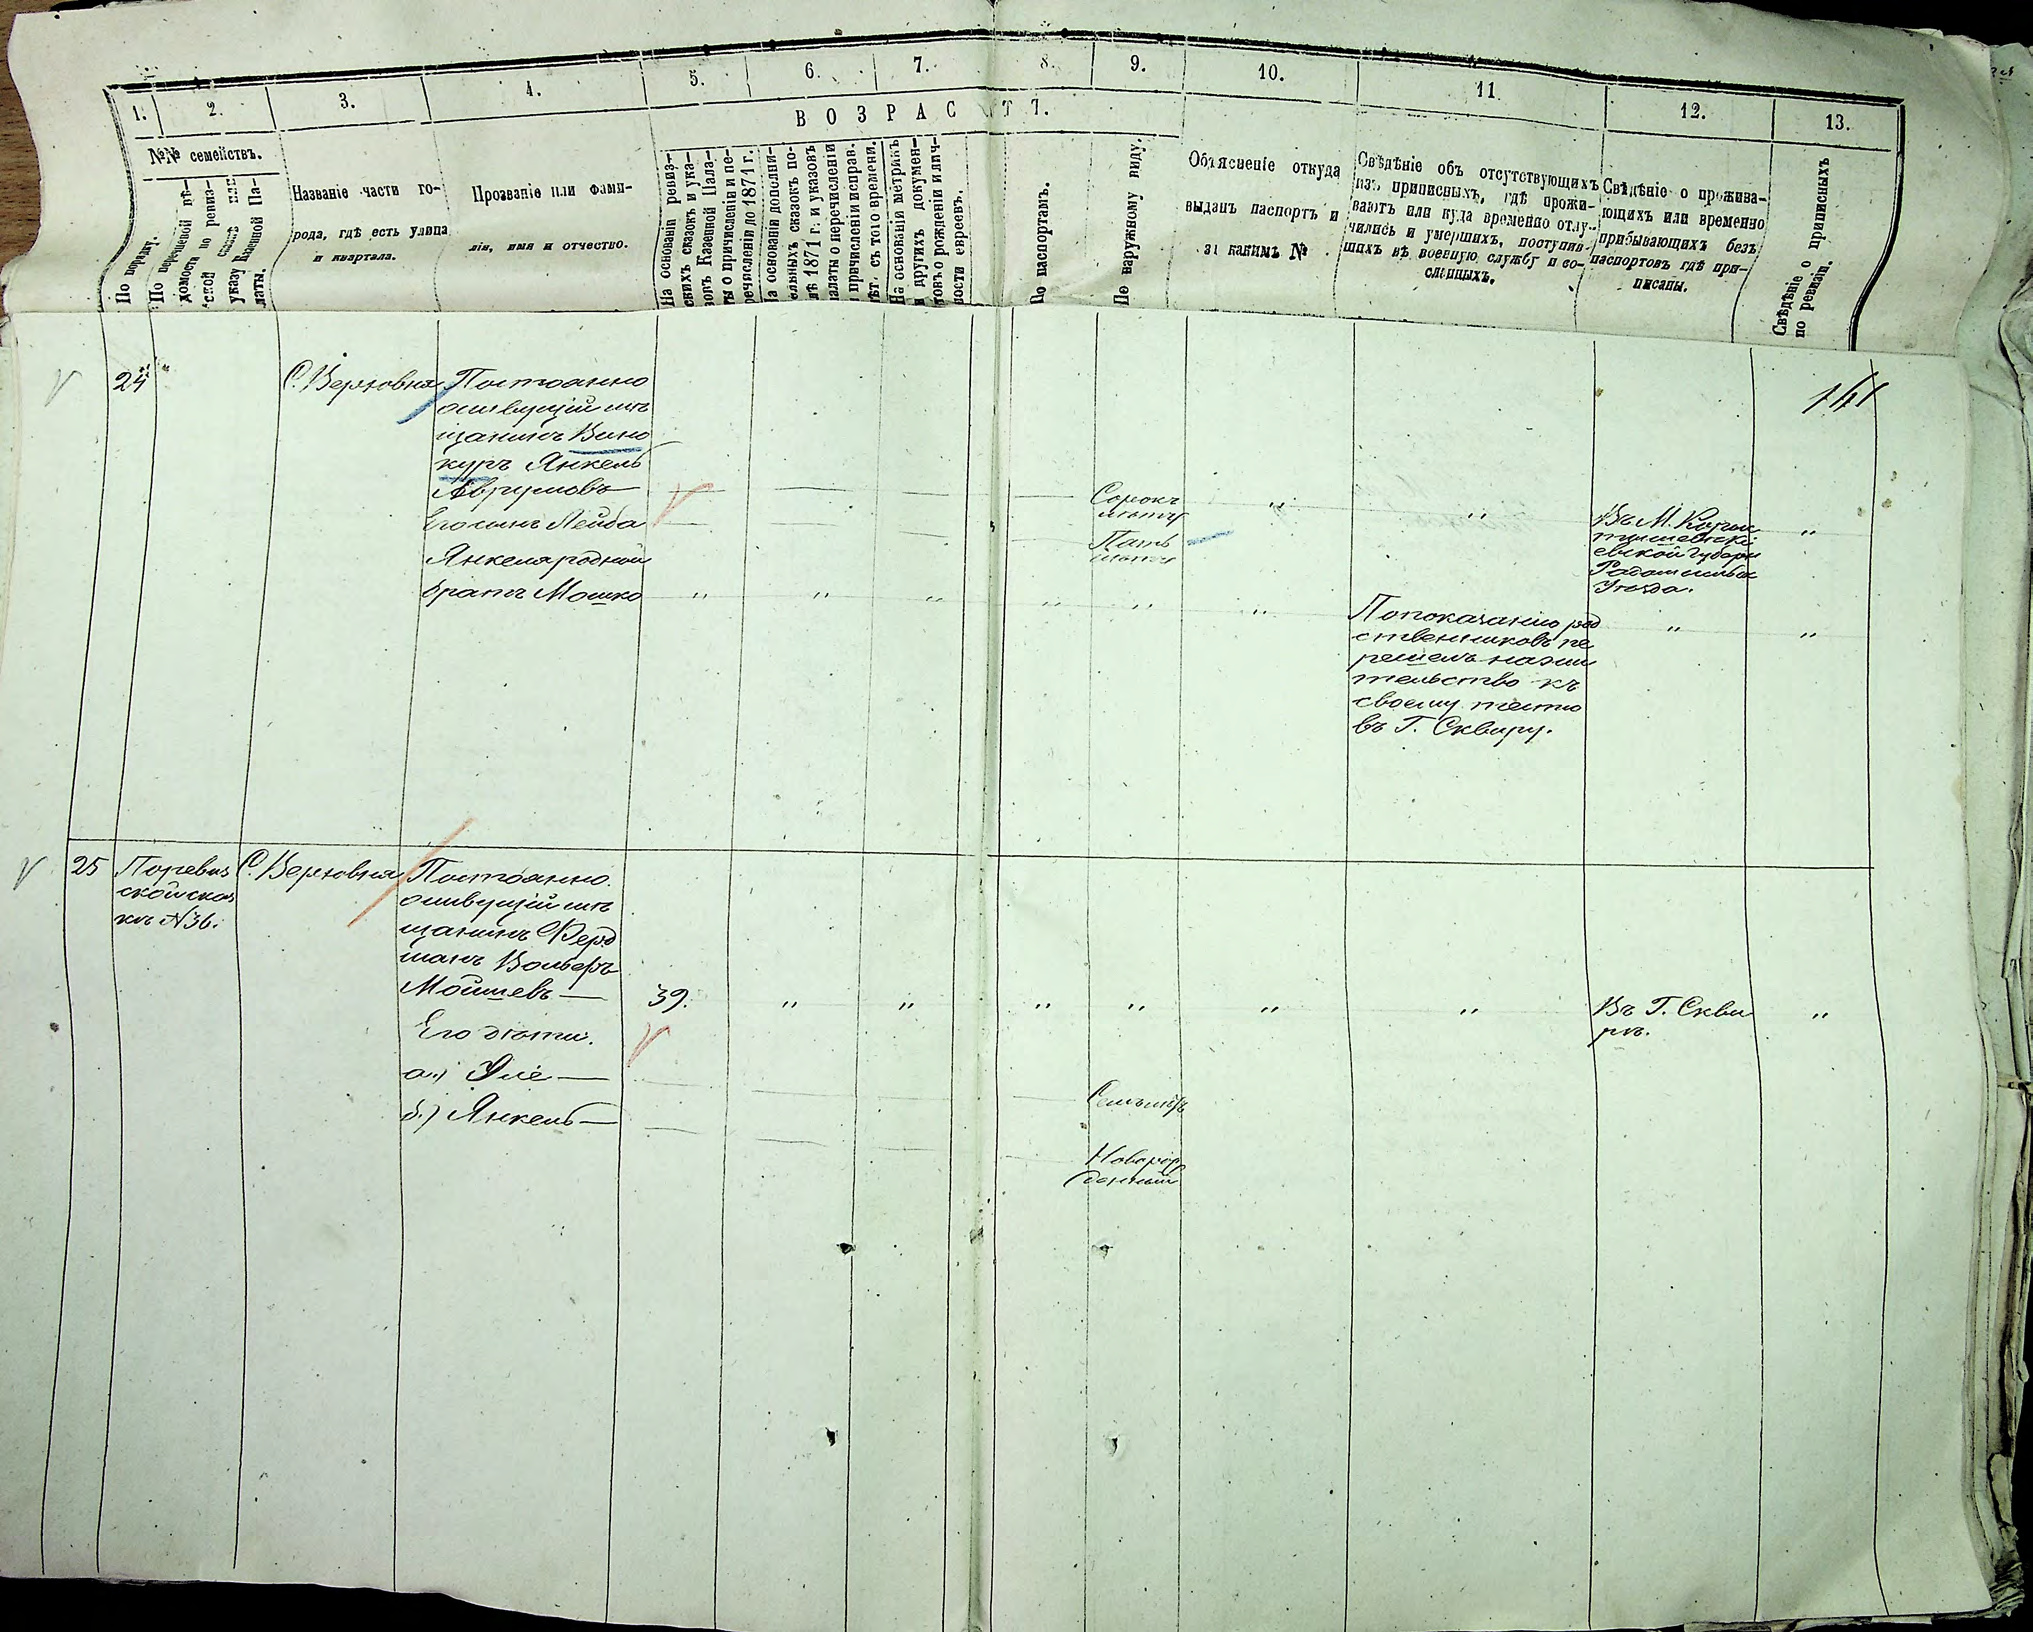 1.
2.
3.
4.
5.
6.
7.
8.
9.
10.
11.
12.
13.
В О З Р А С Т Ъ.
№№ семействъ.
По порядку.
По повѣшеной вѣ-
домости по ревиз-
ской сказкѣ или
указу Казенной Па-
латы.
Названіе части го-
рода, гдѣ есть улица
и квартала.
Прозваніе или фами-
лія, имя и отчество.
На основаніи ревиз-
скихъ сказокъ и ука-
зовъ Казенной Пала-
ты о причисленіи и пе-
речисленіи до 1871 г.
На основаніи дополни-
тельныхъ сказокъ по-
слѣ 1871 г. и указовъ
Палаты о перечисленіи
и причисленіи исправ.
лѣт. съ того времени.
На основаніи метрикъ
и другихъ докумен-
товъ о рожденіи и лич-
ности евреевъ.
По паспортамъ.
По наружному виду.
Объясненіе откуда
выданъ паспортъ и
за какимъ №
Свѣдѣніе объ отсутствующихъ
изъ приписныхъ, гдѣ прожи-
ваютъ или куда временно отлу-
чились и умершихъ, поступив-
шихъ въ военную службу и со-
сланныхъ.
Свѣдѣніе о прожива-
ющихъ или временно
прибывающихъ безъ
паспортовъ гдѣ при-
писаны.
Свѣдѣніе о приписныхъ
по ревизіи.
141
24 "
С. Верховня
Постоанно
ошвущій мѣ
щанинъ Вино
куръ Янкель
Аврумовъ
Его сынъ Лейба
Янкеля родной
братъ Мошко " " " " " "
Сорокъ
лѣтъ
Пять
лѣтъ
" "
Въ М. Корос
тышевѣ Кі
евской Губерн
Радомысльск
Уѣзда.
"
По показанію род
ственниковъ пе
решелъ на жи
тельство къ
своему тестю
въ Г. Сквиру.
" "
25
По ревиз
ской сказ
кѣ №36.
С. Верховня
Постоанно
ошвущій мѣ
щанинъ Ферд
манъ Вольфъ
Мойшевъ — 39. " " " " " "
Въ Г. Скви
рѣ.
"
Его дѣти.
а.) Эле —
Семь лѣтъ
б.) Янкель —
Новорож
денный